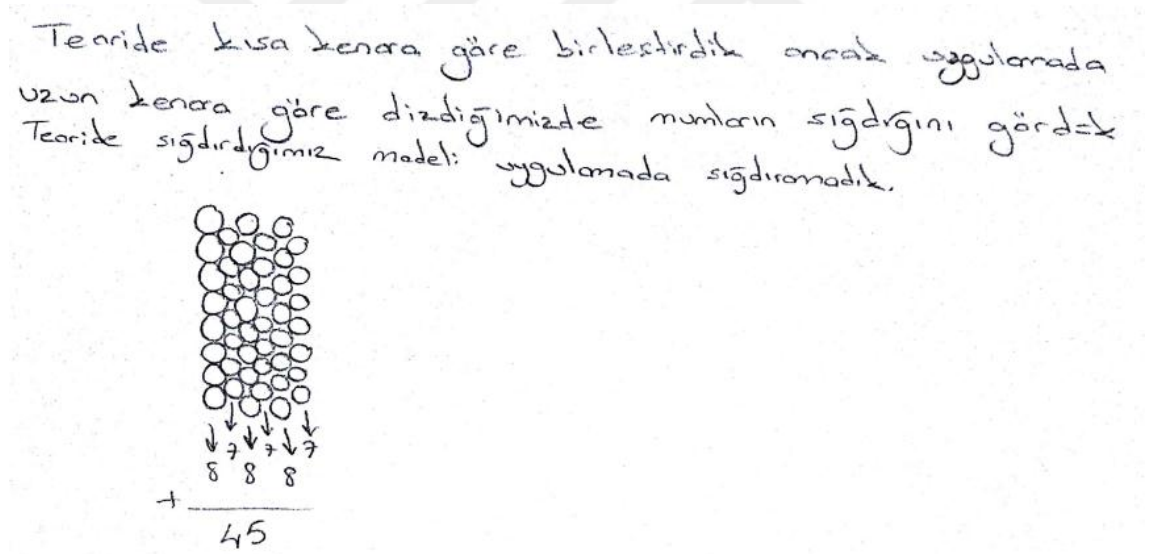 Teoride kısa kenara göre birleştirdik ancak uygulamada
uzun kenara göre dizdiğimizde mumların sığdığını gördük
Teoride sığdırdığımız modeli uygulamada sığdıramadık.
7 7 7
8 8 8
+
45